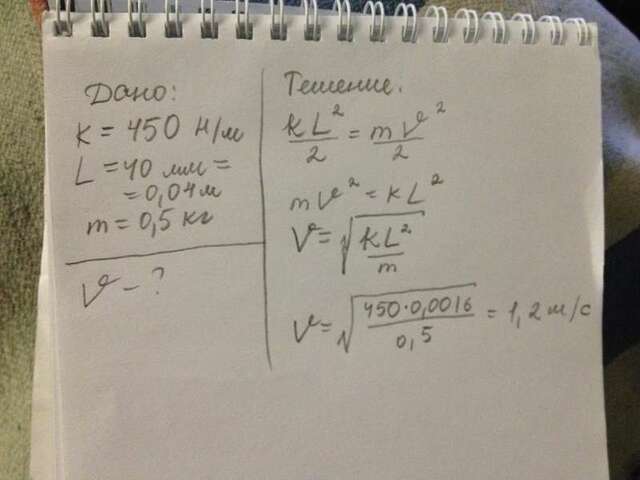 Дано:
k = 450 Н/м
L = 40 мм =
= 0,04 м
m = 0,5 кг
v - ?
Решение.
kL²/2 = mv²/2
mv² = kL²
v = √(kL²/m)
v = √(450·0,0016/0,5) = 1,2 м/с